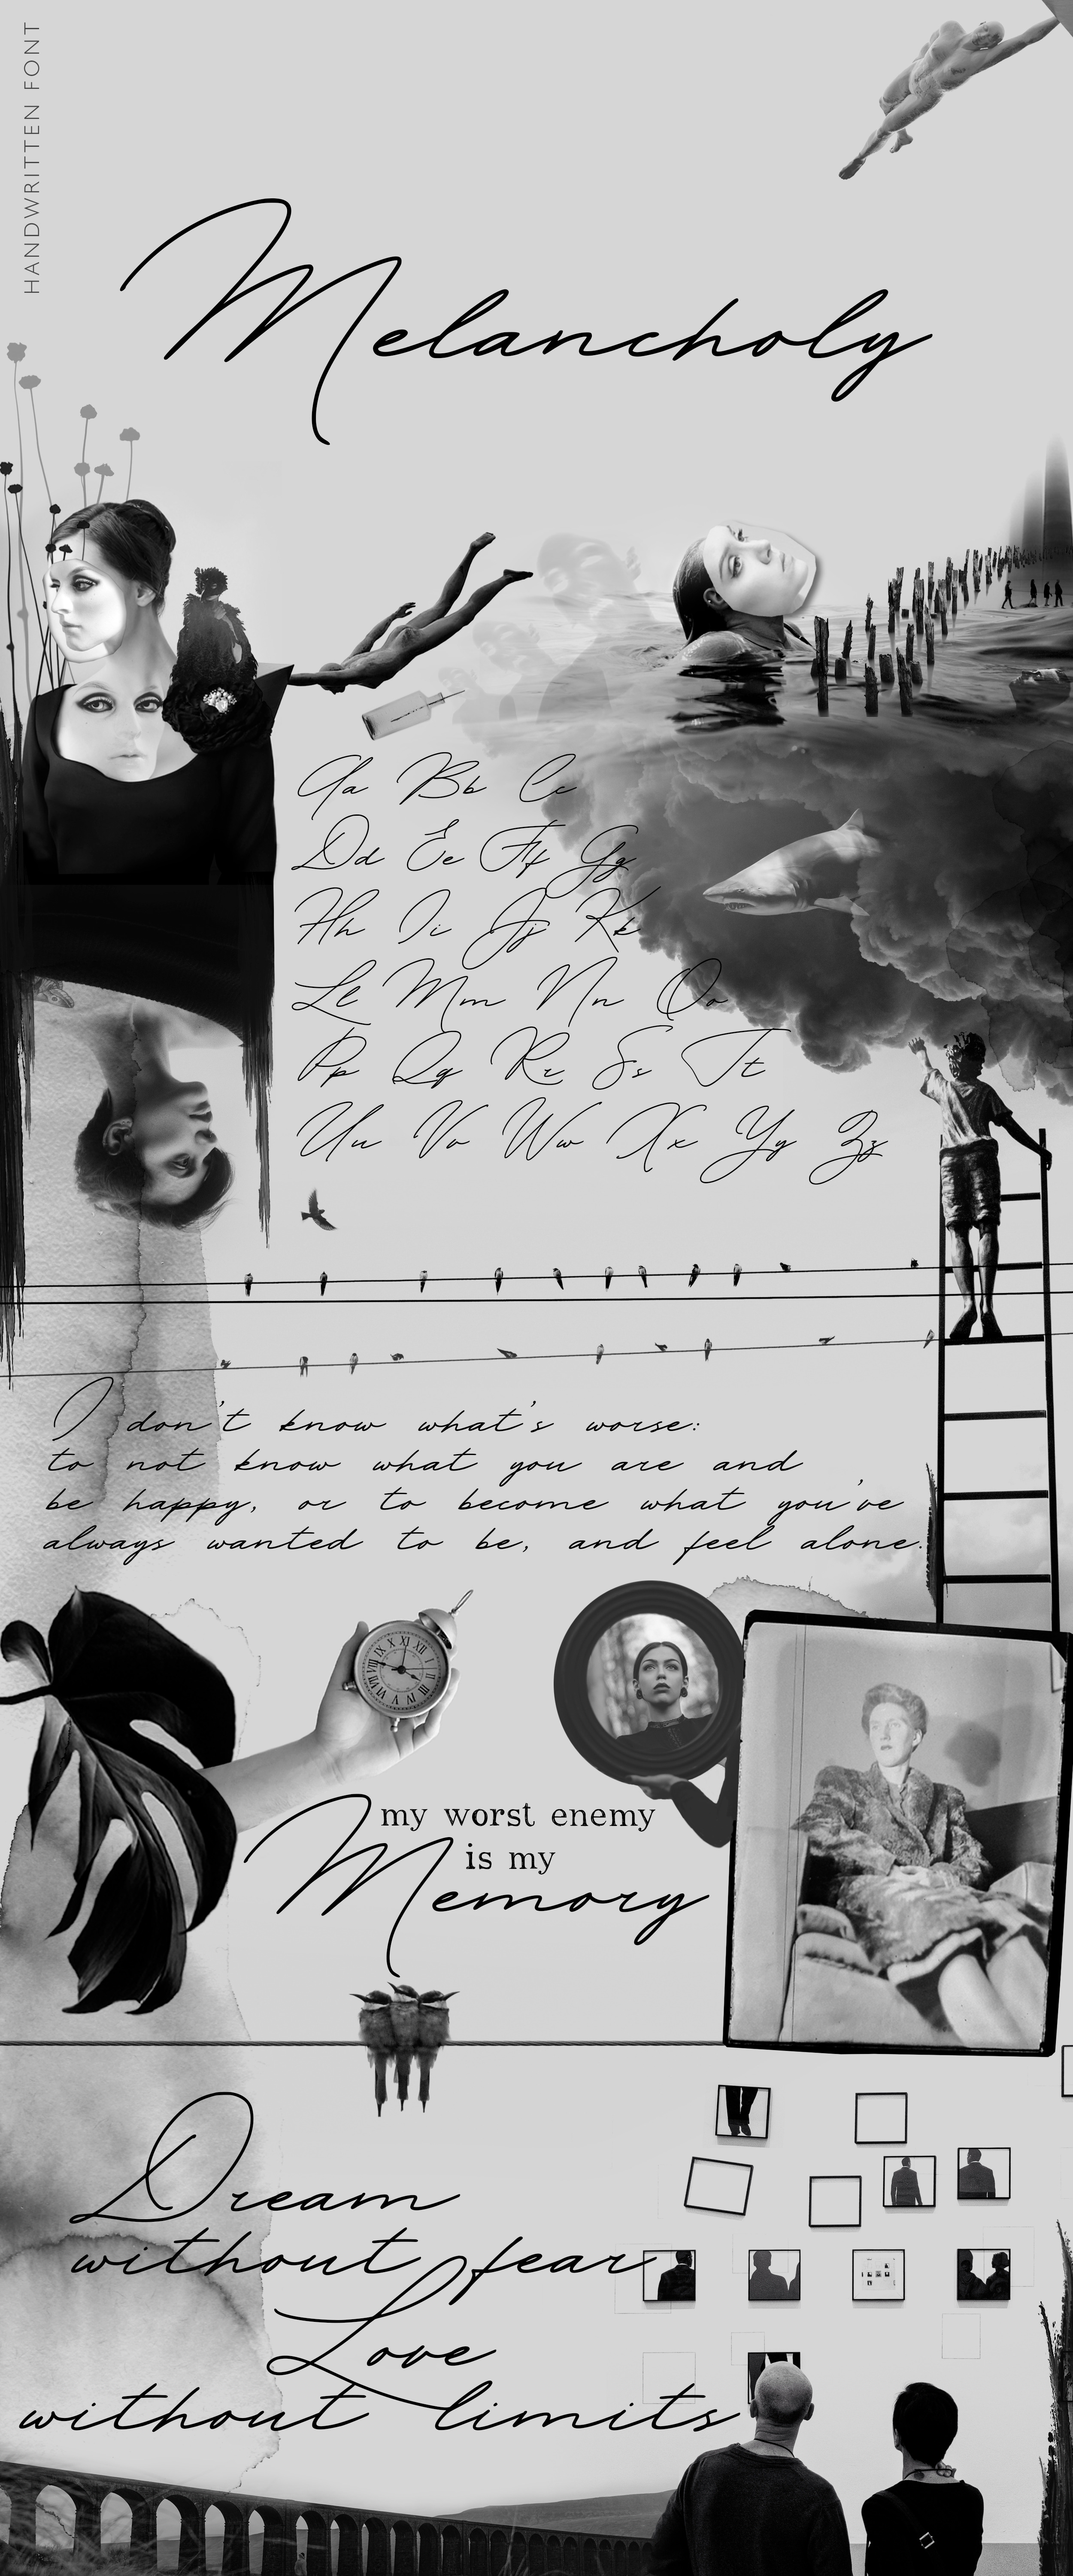 HANDWRITTEN FONT
Melancholy
Aa Bb Cc
Dd Ee Ff Gg
Hh Ii Jj Kk
Ll Mm Nn Oo
Pp Qq Rr Ss Tt
Uu Vv Ww Xx Yy Zz
I don't know what's worse:
to not know what you are and
be happy, or to become what you've
always wanted to be, and feel alone.
XII I II III IV V VI VII VIII IX X XI
my worst enemy
is my
Memory
Dream
without fear
Love
without limits